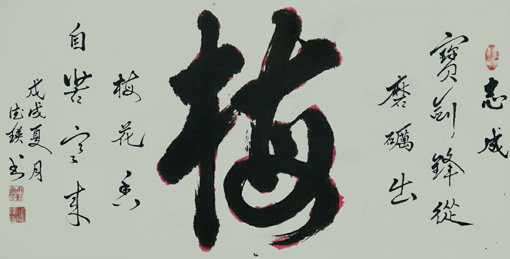 志成
寶劍鋒從
磨礪出
梅
梅花香
自苦寒來
戊戌夏月
書